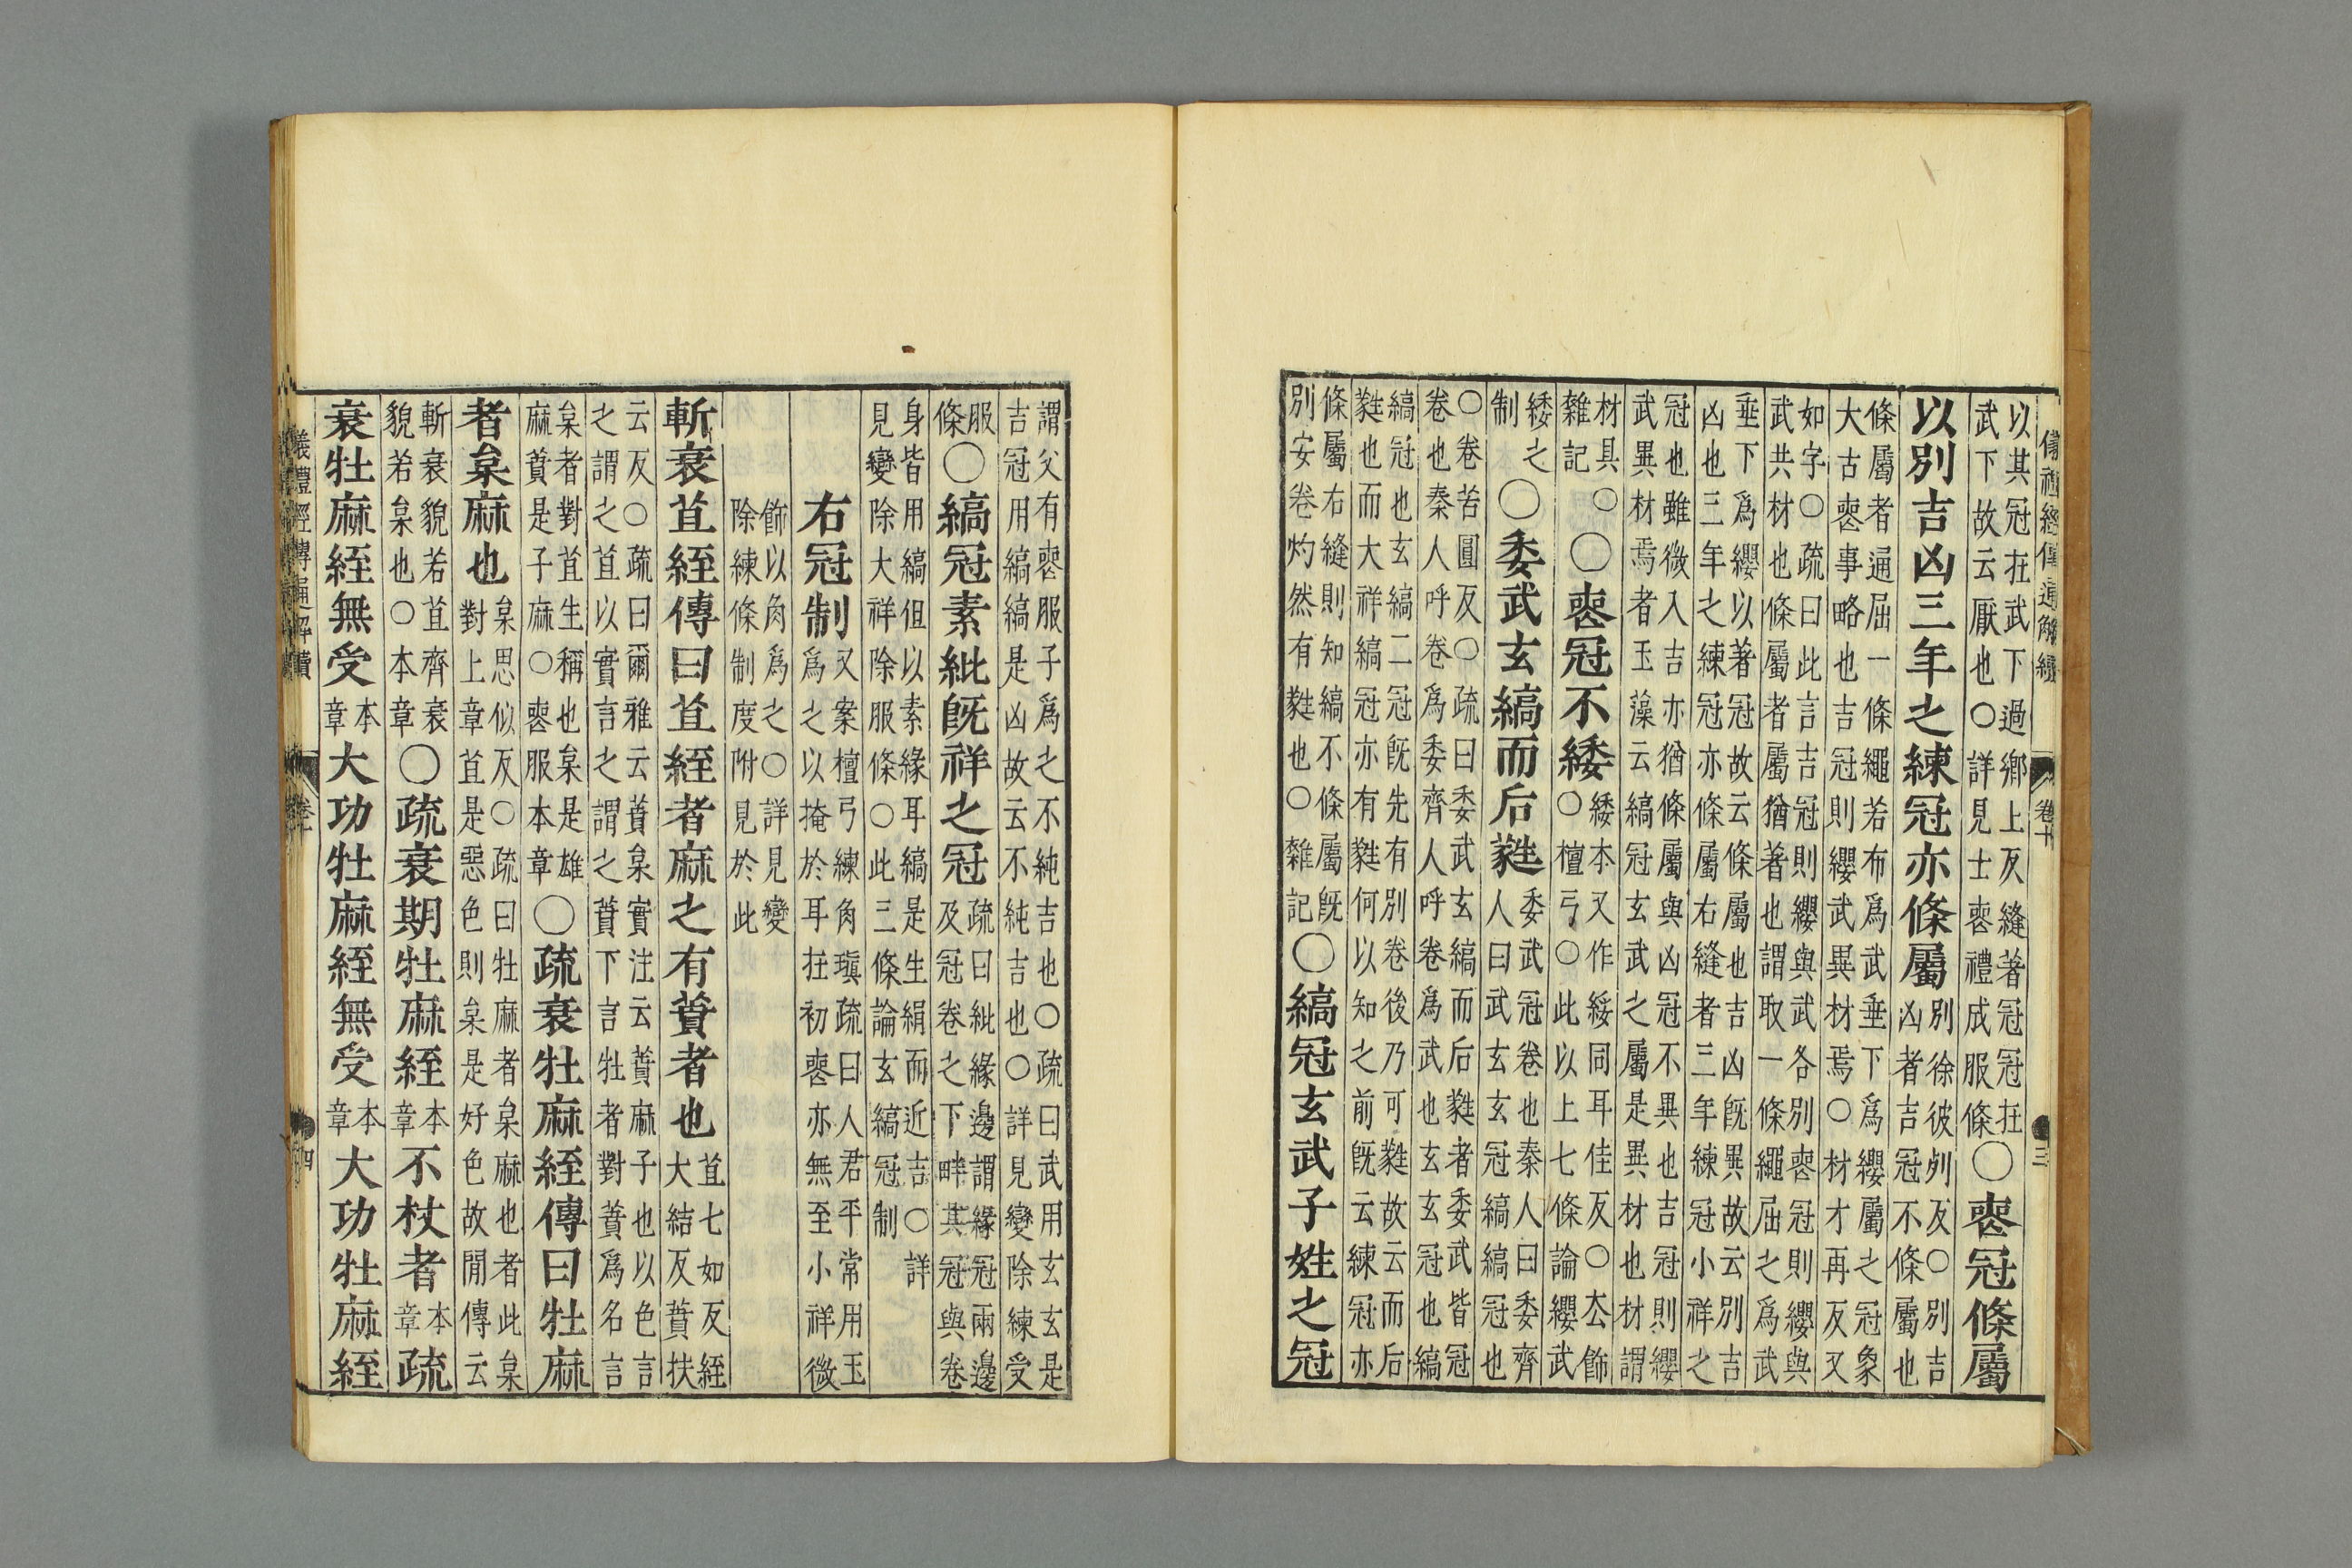 儀禮經傳通解續 卷十 三
以其冠在武下過鄉上反縫著冠冠在武下故云厭也○詳見士喪禮成服條○喪冠條屬
以別吉凶三年之練冠亦條屬別徐彼列反○別吉凶者吉冠不條屬也
條屬者通屈一條繩若布爲武垂下爲纓屬之冠象大古喪事略也吉冠則纓武異材焉○材才再反又
如字○疏曰此言吉冠則纓與武各別喪冠則纓與武共材也條屬者屬猶著也謂取一條繩屈之爲武
垂下爲纓以著冠故云條屬也吉凶旣異故云別吉凶也三年之練冠亦條屬右縫者三年練冠小祥之
冠也雖微入吉亦猶條屬與凶冠不異也吉冠則纓武異材焉者玉藻云縞冠玄武之屬是異材也材謂
材具○雜記○喪冠不緌緌本又作綏同耳佳反○去飾○檀弓○此以上七條論纓武
緌之制○委武玄縞而后蕤委武冠卷也秦人曰委齊人曰武玄玄冠縞縞冠也
○卷苦圓反○疏曰委武玄縞而后蕤者委武皆冠卷也秦人呼卷爲委齊人呼卷爲武也玄玄冠也縞
縞冠也玄縞二冠旣先有別卷後乃可蕤故云而后蕤也而大祥縞冠亦有蕤何以知之前旣云練冠亦
條屬右縫則知縞不條屬旣別安卷灼然有蕤也○雜記○縞冠玄武子姓之冠
謂父有喪服子爲之不純吉也○疏曰武用玄玄是吉冠用縞縞是凶故云不純吉也○詳見變除練受
服條○縞冠素紕旣祥之冠疏曰紕緣邊謂緣冠兩邊及冠卷之下畔其冠與卷
身皆用縞但以素緣耳縞是生絹而近吉○詳見變除大祥除服條○此三條論玄縞冠制
右冠制又案檀弓練角瑱疏曰人君平常用玉爲之以掩於耳在初喪亦無至小祥微
飾以角爲之○詳見變除練條制度附見於此
斬衰苴絰傳曰苴絰者麻之有蕡者也苴七如反絰大結反蕡扶
云反○疏曰爾雅云蕡枲實注云蕡麻子也以色言之謂之苴以實言之謂之蕡下言牡者對蕡爲名言
枲者對苴生稱也枲是雄麻蕡是子麻○喪服本章○疏衰牡麻絰傳曰牡麻
者枲麻也枲思似反○疏曰牡麻者枲麻也者此枲對上章苴是惡色則枲是好色故閒傳云
斬衰貌若苴齊衰貌若枲也○本章○疏衰期牡麻絰本章不杖者本章疏
衰牡麻絰無受本章大功牡麻絰無受本章大功牡麻絰
儀禮經傳通解續 卷十 四